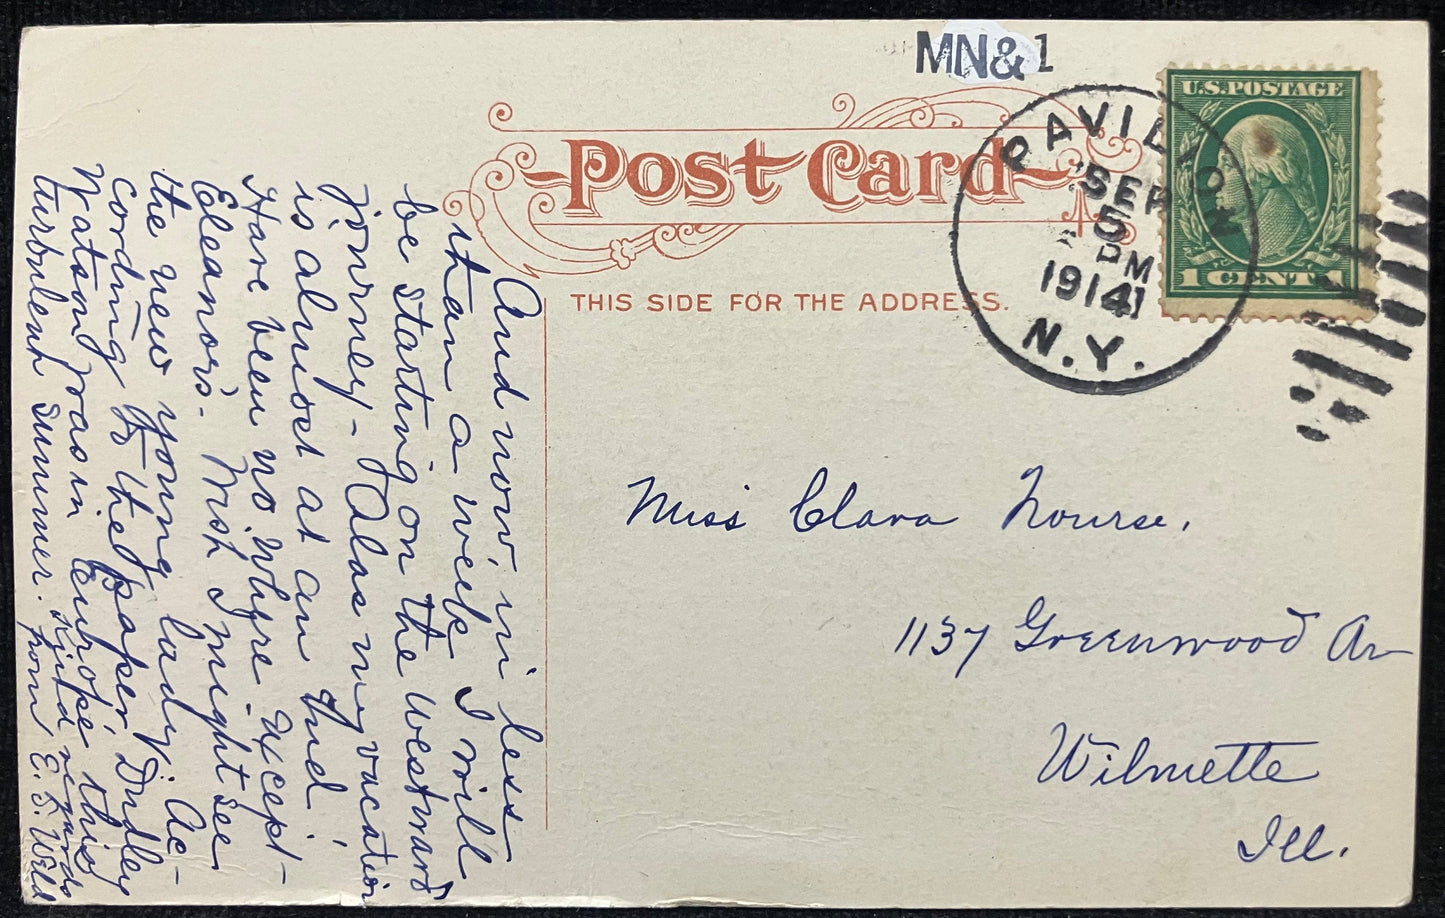 MN&1
Post Card
THIS SIDE FOR THE ADDRESS.
PAVILION
SEP
5
PM
1914
N.Y.
U.S. POSTAGE
1 CENT 1
And now, in less
than a week I will
be starting on the westward
jonrney - Alas my vacation
is almost at an end!
Have been no where except
Eleanor's. - Mrs. I might see
the new young lady. Ac-
cording to the paper Dudley
Watson was in Europe this
turbulent summer. Kind regards
from E. S. Weld
Miss Clara Nourse.
1137 Greenwood Av
Wilmette
Ill.